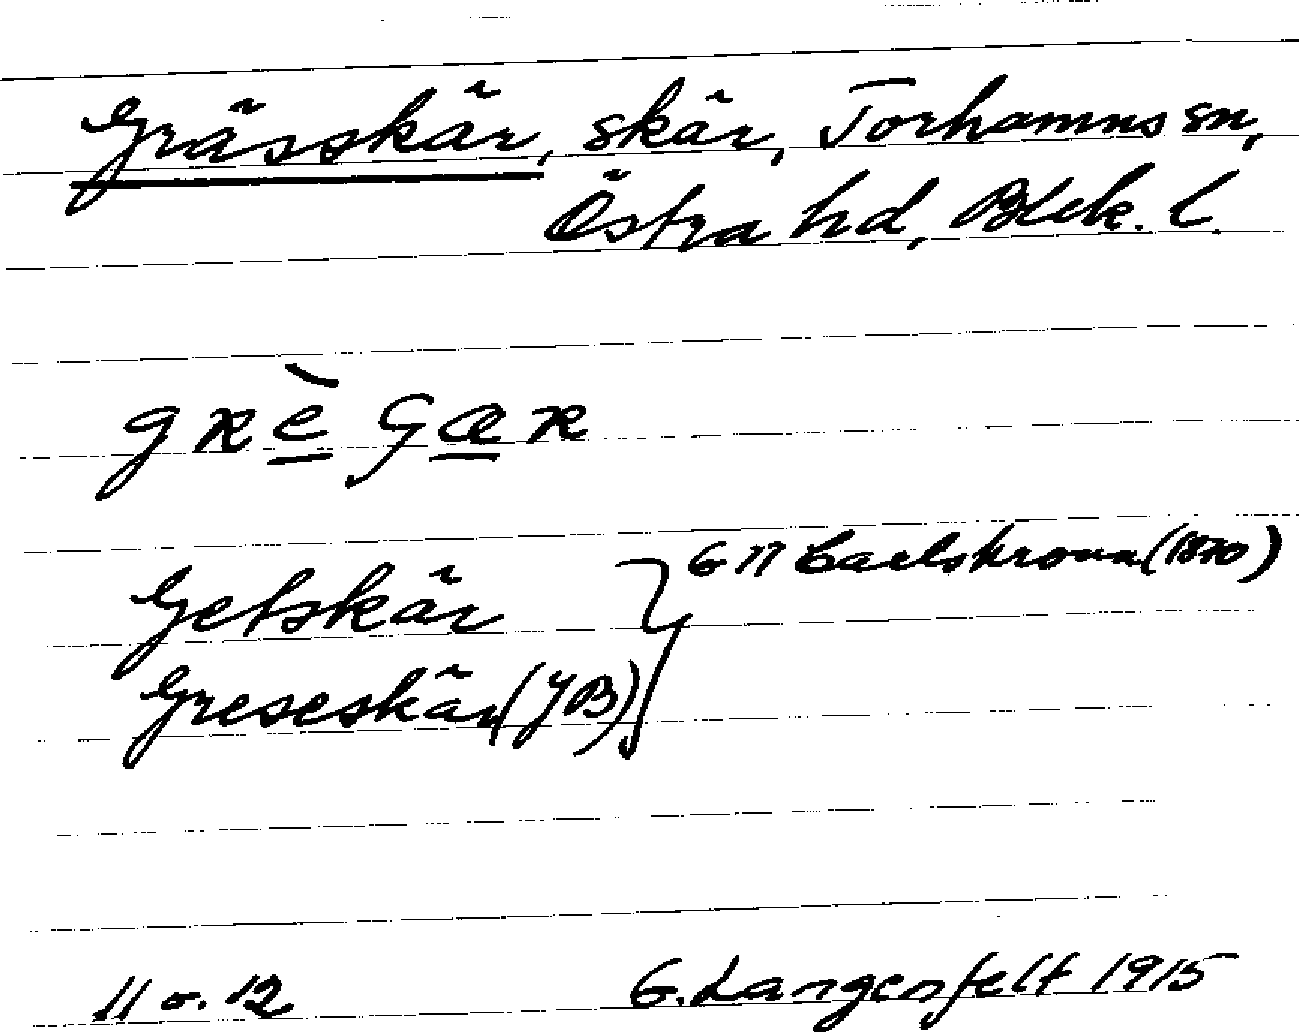 Grässkär, skär, Torhamns sn,
Östra hd, Blek. l.
grè̱ʃæ̱r
Getskär
Greseskär (JB)
GK Carlskrona (1870)
11 o. 12
G. Langenfelt 1915